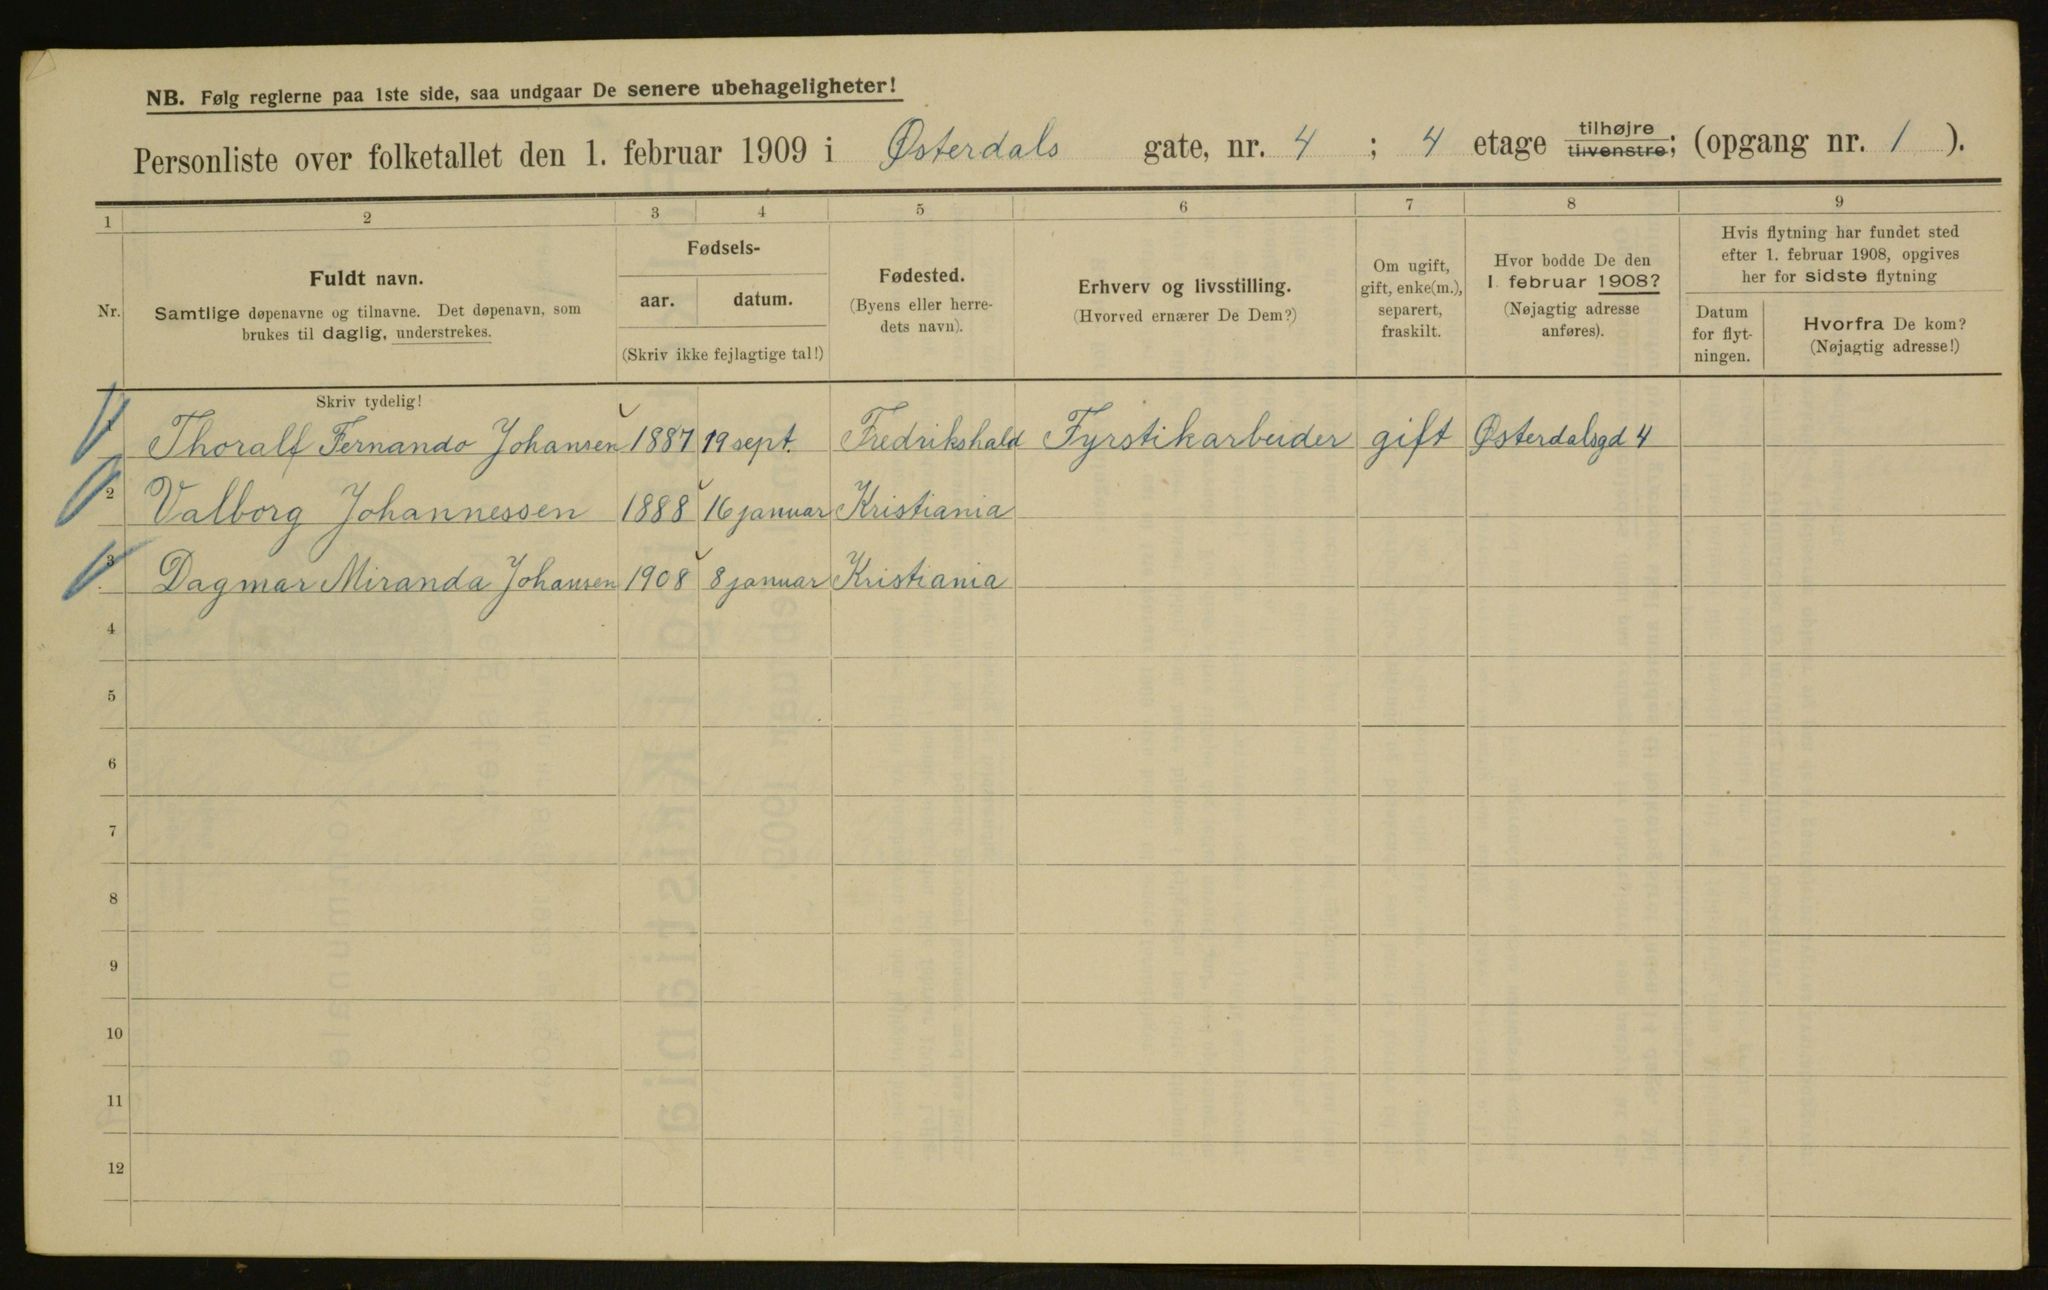 NB. Følg reglerne paa 1ste side, saa undgaar De senere ubehageligheter!
Personliste over folketallet den 1. februar 1909 i Østerdals gate, nr. 4 ; 4 etage tilhøjre tilvenstre; (opgang nr. 1 ).
1 2 3 4 5 6 7 8 9
Nr.
Fuldt navn.
Samtlige døpenavne og tilnavne. Det døpenavn, som
brukes til daglig, understrekes.
Fødsels-
aar. datum.
(Skriv ikke fejlagtige tal!)
Fødested.
(Byens eller herre-
dets navn).
Erhverv og livsstilling.
(Hvorved ernærer De Dem?)
Om ugift,
gift, enke(m.),
separert,
fraskilt.
Hvor bodde De den
1. februar 1908?
(Nøjagtig adresse
anføres).
Hvis flytning har fundet sted
efter 1. februar 1908, opgives
her for sidste flytning
Datum
for flyt-
ningen.
Hvorfra De kom?
(Nøjagtig adresse!)
Skriv tydelig!
1 Thoralf Fernando Johansen 1887 19 sept. Fredrikshald Fyrstikarbeider gift Østerdalsgd 4
2 Valborg Johannessen 1888 16 januar Kristiania
3 Dagmar Miranda Johansen 1908 8 januar Kristiania
4
5
6
7
8
9
10
11
12